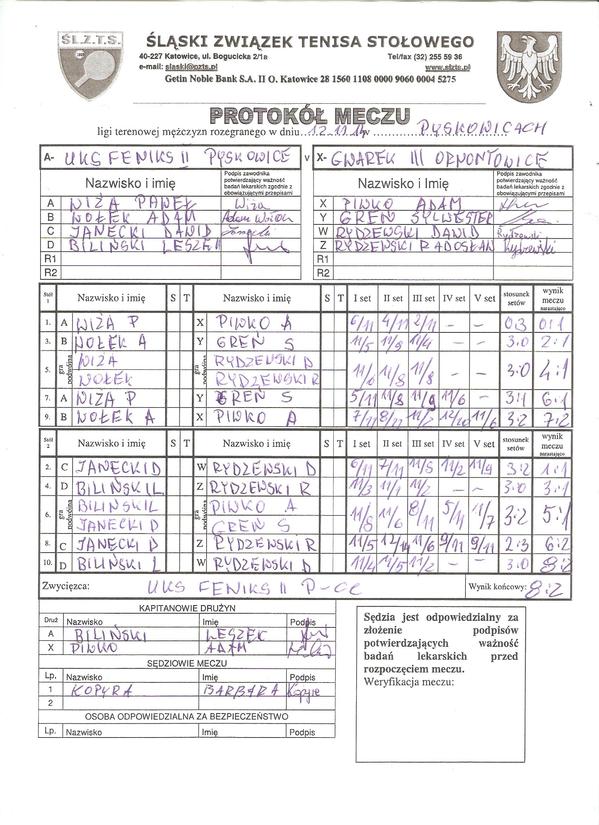 ŚL.Z.T.S.
ŚLĄSKI ZWIĄZEK TENISA STOŁOWEGO
40-227 Katowice, ul. Bogucicka 2/1a Tel/fax (32) 255 59 36
e-mail: slaski@ozts.pl www.slzts.pl
Getin Noble Bank S.A. II O. Katowice 28 1560 1108 0000 9060 0004 5275
PROTOKÓŁ MECZU
ligi terenowej mężczyzn rozegranego w dniu 12.11.14 w PYSKOWICACH
A- UKS FENIKS II PYSKOWICE v X- GWAREK III ORNONTOWICE
Nazwisko i Imię Podpis zawodnika potwierdzający ważność badań lekarskich zgodnie z obowiązującymi przepisami Nazwisko i Imię Podpis zawodnika potwierdzający ważność badań lekarskich zgodnie z obowiązującymi przepisami
A WIŻA PAWEŁ Wiża X PIWKO ADAM
B WOŁEK ADAM Adam Wołek Y GREŃ SYLWESTER
C JANECKI DAWID W RYDZEWSKI DAWID Rydzewski
D BILIŃSKI LESZEK Z RYDZEWSKI RADOSŁAW Rydzewski
R1 R1
R2 R2
Stół 1 Nazwisko i imię S T Nazwisko i imię S T I set II set III set IV set V set stosunek setów wynik meczu narastająco
1. A WIŻA P X PIWKO A 6/11 4/11 2/11 - - 0:3 0:1
3. B WOŁEK A Y GREŃ S 11/5 11/9 11/4 - - 3:0 2:1
5. gra podwójna WIŻA gra podwójna RYDZEWSKI D
WOŁEK RYDZEWSKI R 11/6 11/8 11/8 - - 3:0 4:1
7. A WIŻA P Y GREŃ S 5/11 11/8 11/9 11/6 - 3:1 6:1
9. B WOŁEK A X PIWKO A 7/11 8/11 11/2 12/10 11/6 3:2 7:2
Stół 2 Nazwisko i imię S T Nazwisko i imię S T I set II set III set IV set V set stosunek setów wynik meczu narastająco
2. C JANECKI D W RYDZEWSKI D 6/11 7/11 11/5 11/2 11/9 3:2 1:1
4. D BILIŃSKI L Z RYDZEWSKI R 11/3 11/1 11/2 - - 3:0 3:1
6. gra podwójna BILIŃSKI L gra podwójna PIWKO A
JANECKI D GREŃ S 11/8 11/6 8/11 5/11 11/7 3:2 5:1
8. C JANECKI D Z RYDZEWSKI R 11/5 12/14 11/6 9/11 9/11 2:3 6:2
10. D BILIŃSKI L W RYDZEWSKI D 11/4 11/5 11/2 - - 3:0 8:2
Zwycięzca: UKS FENIKS II P-CE Wynik końcowy: 8:2
KAPITANOWIE DRUŻYN
Druż Nazwisko Imię Podpis
A BILIŃSKI LESZEK
X PIWKO ADAM
SĘDZIOWIE MECZU
Lp. Nazwisko Imię Podpis
1 KOPYRA BARBARA Kopyra
2
OSOBA ODPOWIEDZIALNA ZA BEZPIECZEŃSTWO
Lp. Nazwisko Imię Podpis
Sędzia jest odpowiedzialny za
złożenie podpisów
potwierdzających ważność
badań lekarskich przed
rozpoczęciem meczu.
Weryfikacja meczu: